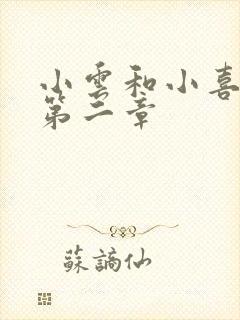 小雲和小喜
第二章
蘇謫仙